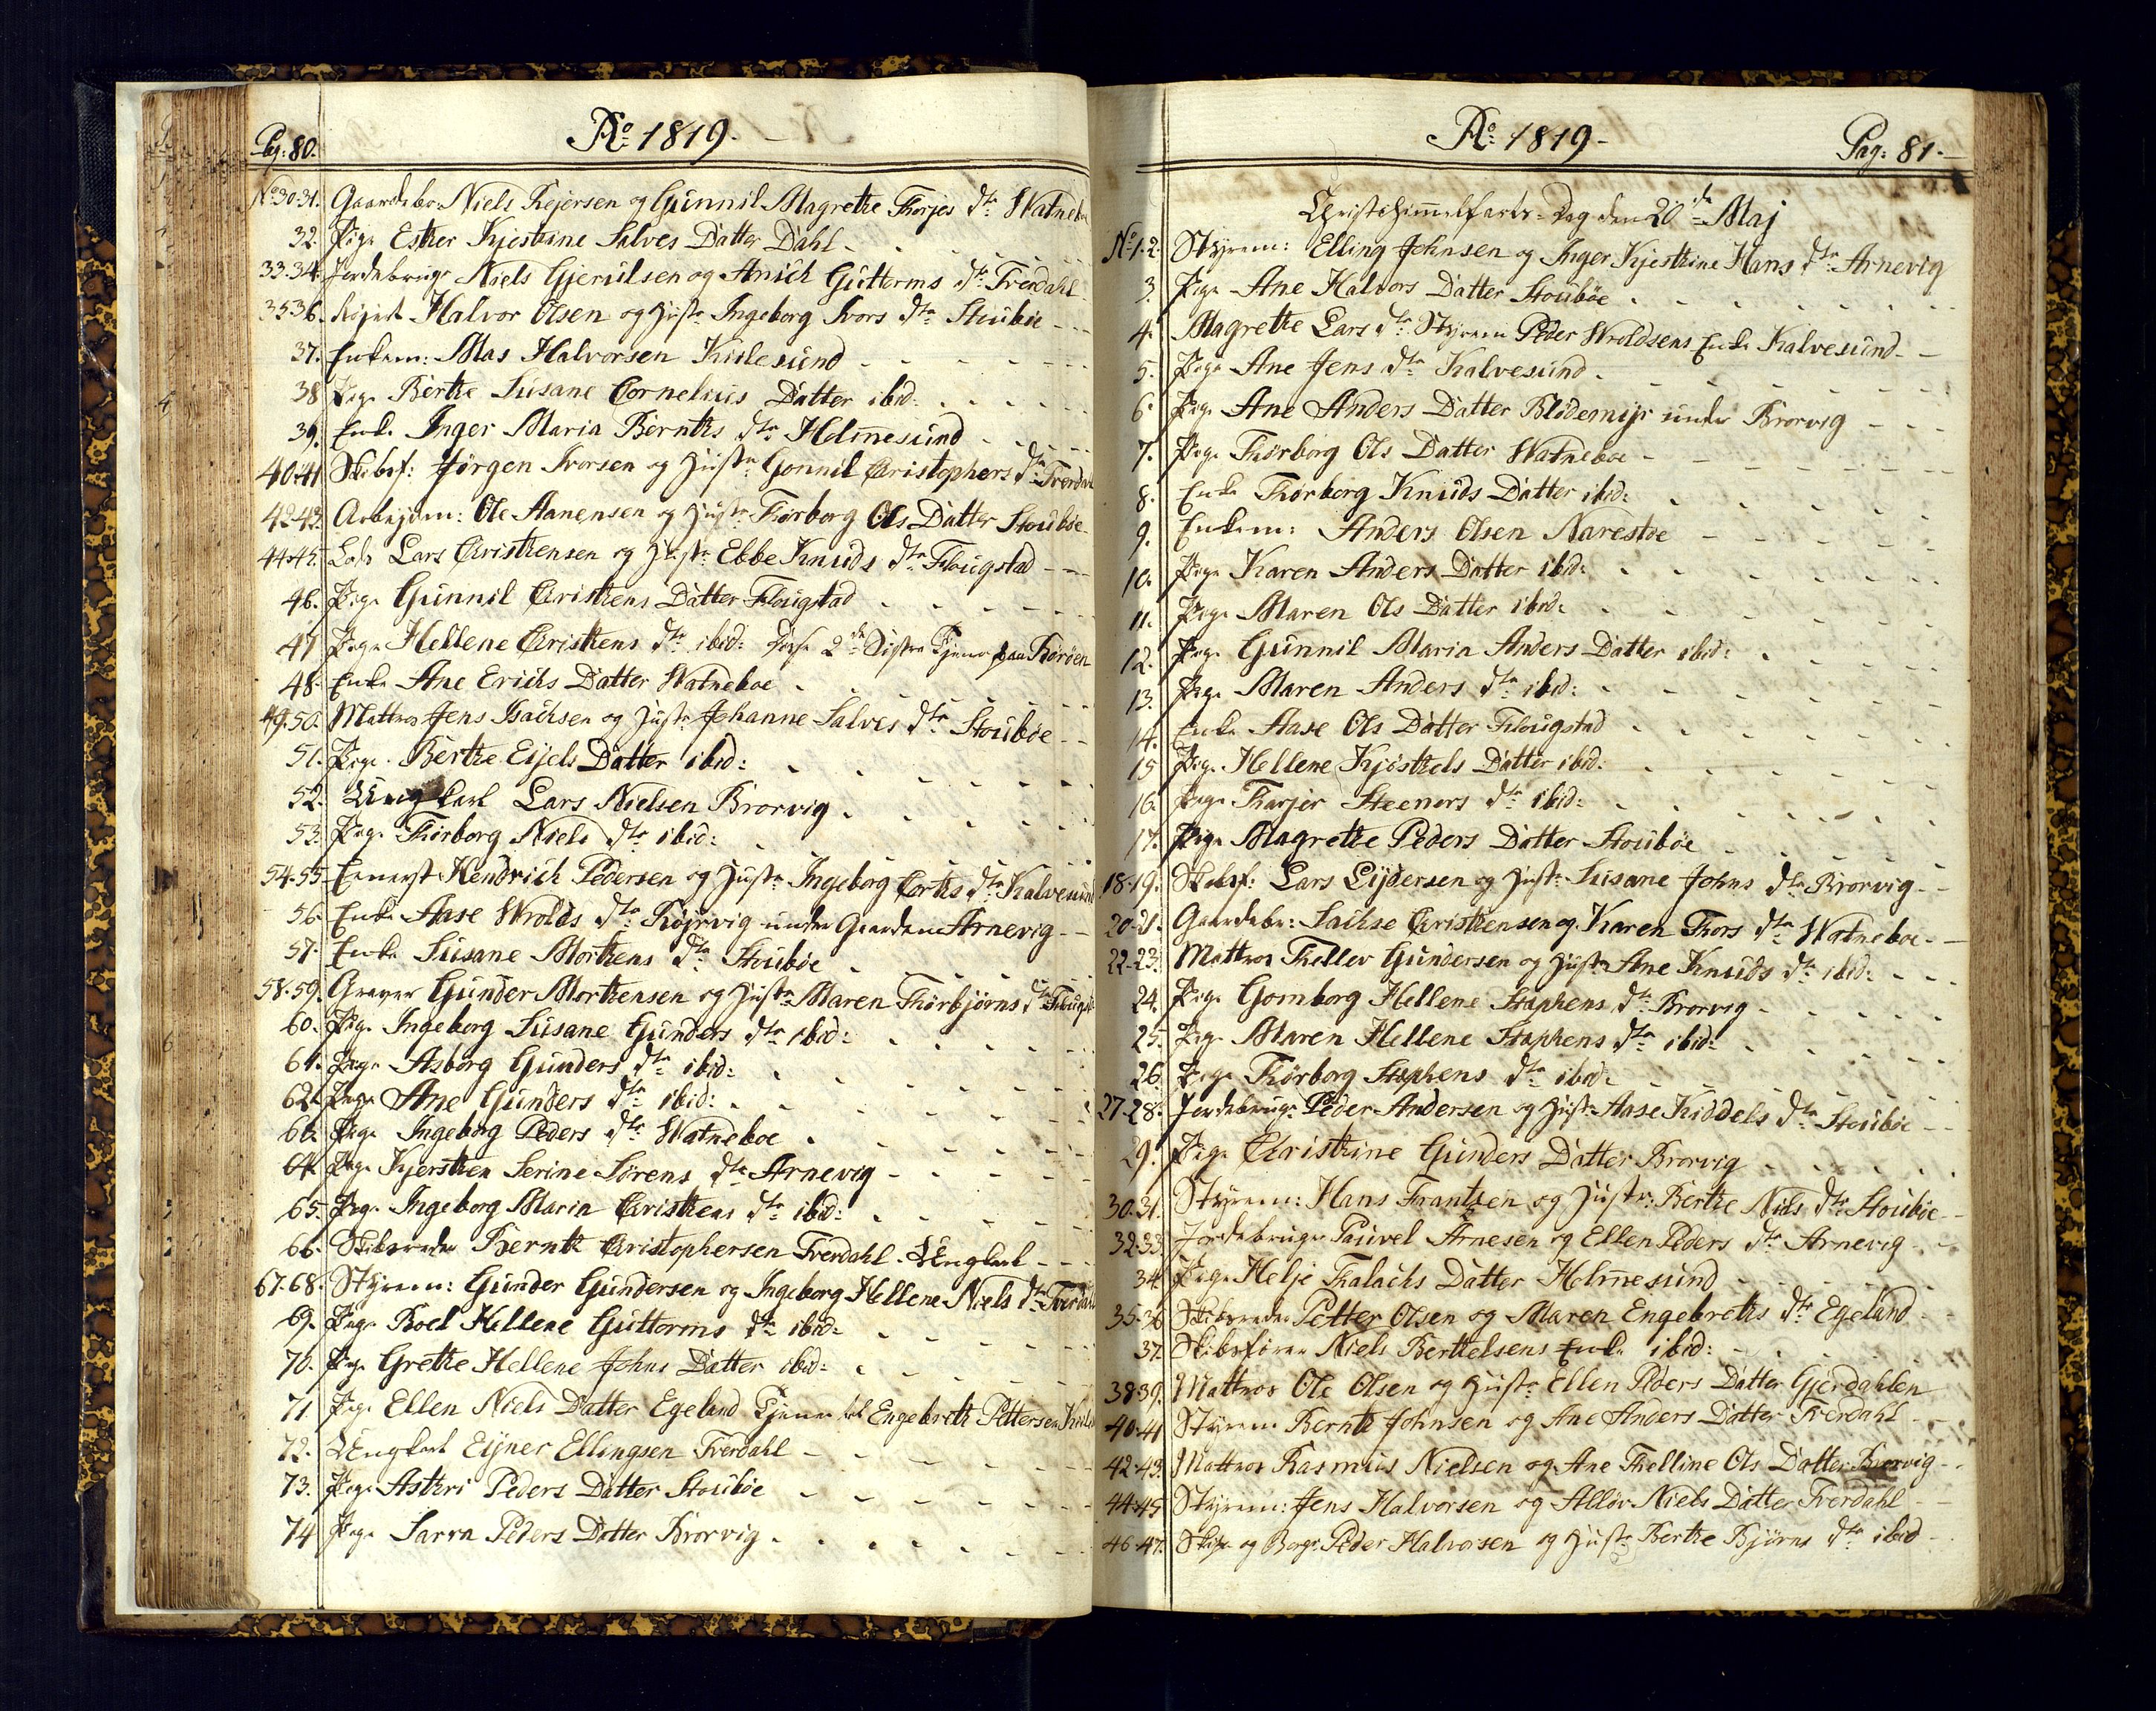 Pag: 80.
Ao 1819.
No 30.31. Gaardebr: Niels Rejersen og Gunnil Magrethe Thorjes dtr Watnebo
32. Pige Esther Kjesthine Salves Datter Dahl
33.34. Jordebruger Niels Gjerulsen og Anich Guttorms dtr Tverdahl
35.36. Halvor Olsen og Hustr Ingeborg Ivors dtr Stoubøe
37. Enkem: Mas Halvorsen Kirlesund
38 Pige Berthe Susane Cornelius Datter ibid:
39. Enke Inger Maria Bernths dtr Holmesund
40.41 Skibsf: Jörgen Ivorsen og Hustr Gonnil Christophers dtr Tverdahl
42.43. Arbejdsm: Ole Aanensen og Hustr Thorborg Ols Datter Stoubøe
44.45. Lods Lars Christhensen og Hustr Ebbe Knuds dtr Flougstad
46. Pige Gunnil Christhens Datter Flougstad
47 Pige Hellene Christhens dtr ibid: disse 2de Søstre Tjener paa Thorøen
48. Enke Ane Erichs Datter Watneboe
49.50. Mattros Jens Isachsen og Hustr Johanne Salves dtr Stoubøe
51. Pige Berthe Eijels Datter ibid:
52. Ungkarl Lars Nielsen Brorvig
53. Pige Thorborg Niels dtr ibid:
54.55 Hendrich Pedersen og Hustr Ingeborg Corths dtr Kalvesund
56. Enke Aase Wrolds dtr Røjrvig under Gaarden Arnevig
57. Enke Susane Morthens dtr Stoubøe
58.59. Graver Gunder Morthensen og Hustr Maren Thorbjørns dtr Flougst
60. Pige Ingeborg Susane Gunders dtr ibid:
61. Pige Asborg Gunders dtr ibid:
62. Pige Ane Gunders dtr ibid:
Pige Ingeborg Peders dtr Watneboe
64. Pige Kjersthen Serine Sørens dtr Arnevig
65. Pige Ingeborg Maria Christhens dtr ibid:
66. Skibsreder Bernth Christophersen Tverdahl Ungkarl
67.68. Styrem: Gunder Gundersen og Ingeborg Hellene Niels dtr Tverdahl
69. Pige Roel Hellene Guttorms dtr ibid:
70. Pige Grethe Hellene Johns Datter ibid:
71 Pige Ellen Niels Datter Egeland Tjener hos Engebreth Pettersen
72. Ungkarl Eijner Ellingsen Tverdahl
73. Pige Astheri Peders Datter Stoubøe
74 Pige Sarra Peders Datter Brorvig
Ao 1819
Pag: 81.
Christi himmelfarts-Dag den 20de Maj
No 1.2. Styrem: Elling Johnsen og Inger Kjesthine Hans dtr Arnevig
3. Pige Ane Halvors Datter Stoubøe
4. Magrethe Lars dtr Styrem Peder Wroldsens Enke Kalvesund
5. Pige Ane Jens dtr Kalvesund
6. Pige Ane Anders Datter under Brorvig
7. Pige Thorborg Ols Datter Watneboe
8. Enke Thorborg Knuds Datter ibid:
9. Enkem: Anders Olsen Narestøe
10. Pige Karen Anders Datter ibid:
11. Pige Maren Ols Datter ibid:
12. Pige Gunnil Maria Anders Datter ibid:
13. Pige Maren Anders dtr ibid:
14. Enke Aase Ols Datter Flougstad
15 Pige Hellene Kjösthels Datter ibid:
16. Pige Tharjer Steeners dtr ibid:
17. Pige Magrethe Peders Datter Stoubøe
18.19. Skibsf: Lars Lijdersen og Hustr Susane Johns dtr Brorvig
20.21. Gaardebr: Sachse Christhensen og Karen Thors dtr Watneboe
22.23. Mattros Thellev Gundersen og Hustr Ane Knuds dtr ibid:
24. Pige Gomborg Hellene Stephens dtr Brorvig
25. Pige Maren Hellene Stephens dtr ibid:
26. Pige Thorborg Stephens dtr ibid:
27.28. Jordebrug: Peder Andersen og Hustr Aase Kiddels dtr Stoubøe
29. Pige Christhine Gunders Datter Brorvig
30.31. Styrem: Hans Frantzen og Hustr: Berthe Niels dtr Stoubøe
32.33 Jordebruger Pauvel Arnesen og Ellen Peders dtr Arnevig
34. Pige Helje Thalachs Datter Holmesund
35.36 Skibsreder Petter Olsen og Maren Engebreths dtr Egeland
37. Skibsfører Niels Berthelsens Enke ibid:
38.39. Mattros Ole Olsen og Hustr Ellen Peders Datter Gjerdahlen
40.41 Styrem Bernth Johnsen og Ane Anders Datter Tverdahl
42.43. Mattros Rasmus Nielsen og Ane Thelline Ols Datter Brorvig
44.45 Styrem: Jens Halvorsen og Alløv Niels Datter Tverdahl
46.47. og Borger Peder Halvorsen og Hustr Berthe Bjørns dtr ibid